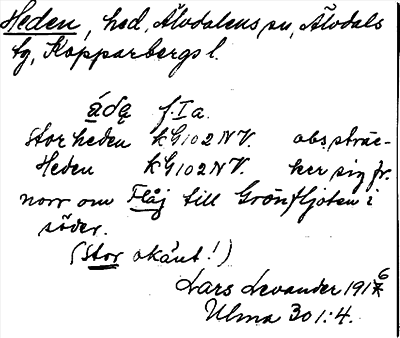 Heden, hed, Älvdalens sn, Älvdals
tg, Kopparbergs l.
ádą f. I a.
Storheden kG102NV. obs. sträc-
Heden kG102NV. ker sig fr.
norr om Flåj till Grönfljoten i
söder.
(Stor okänt!)
Lars Levander 1916
Ulma 301:4.